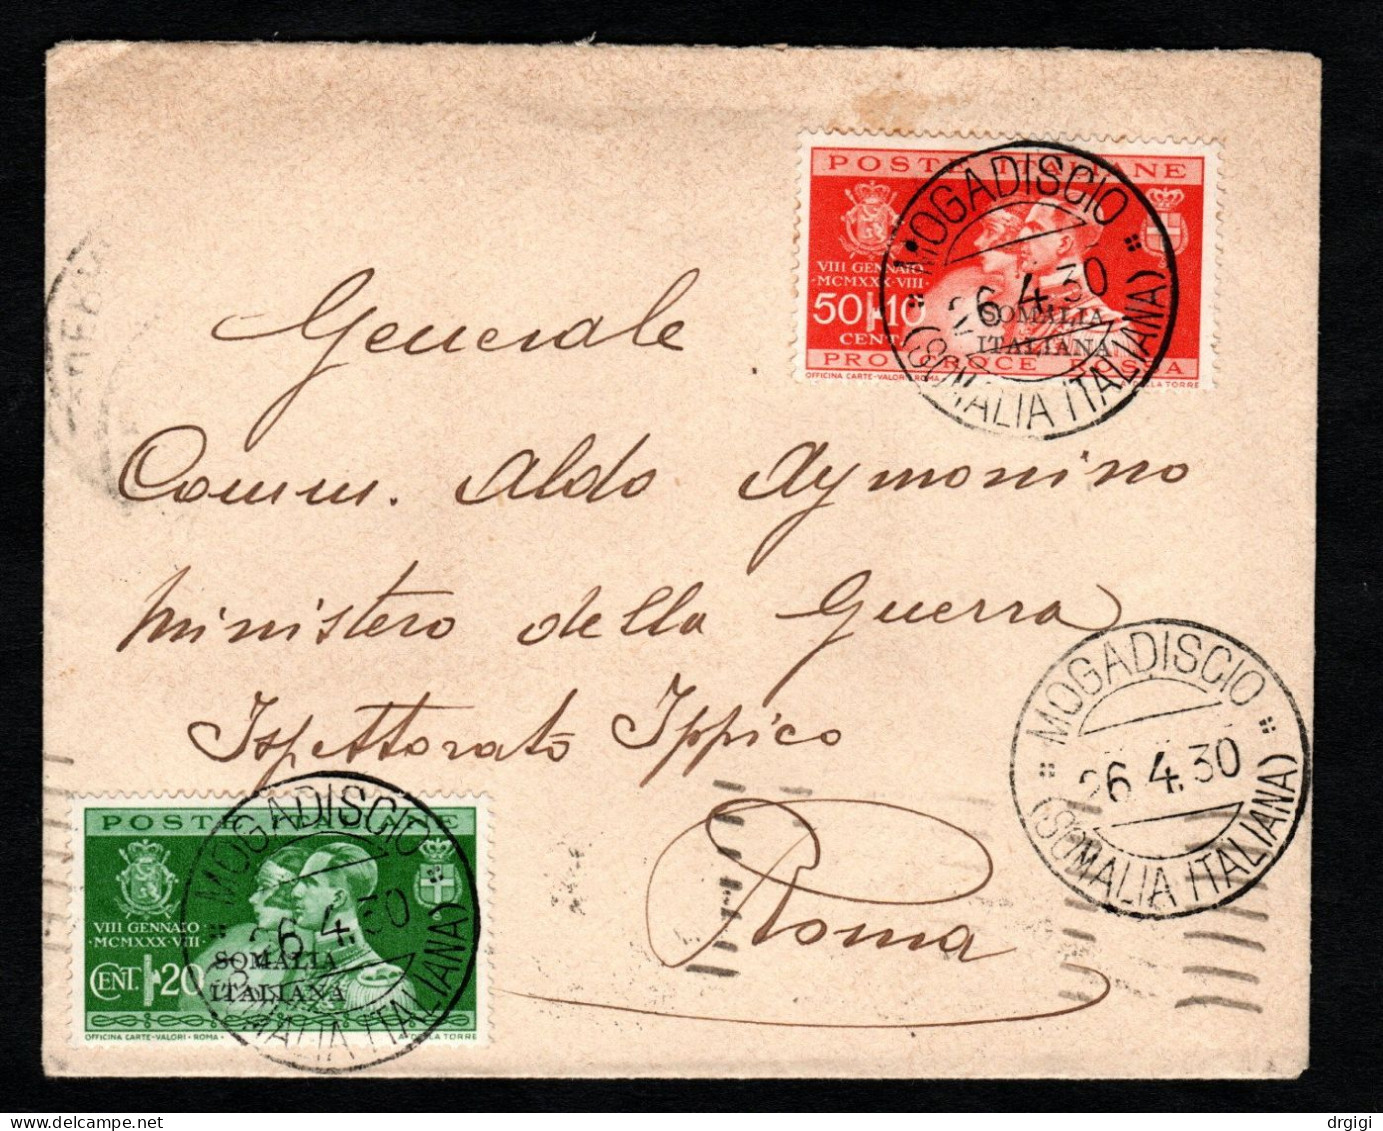 POSTE ITALIANE
VIII GENNAIO
·MCMXXX·VIII·
50+10
CENT.
SOMALIA
ITALIANA
PRO CROCE ROSSA
OFFICINA CARTE-VALORI·ROMA
DELLA TORRE
MOGADISCIO
26.4.30
(SOMALIA ITALIANA)
Generale
Comm. Aldo Aymonino
Ministero della Guerra
Ispettorato Ippico
Roma
MOGADISCIO
26.4.30
(SOMALIA ITALIANA)
POSTE ITALIANE
VIII GENNAIO
·MCMXXX·VIII·
CENT. 20
SOMALIA
ITALIANA
OFFICINA CARTE-VALORI·ROMA·
A. DELLA TORRE
MOGADISCIO
26.4.30
(SOMALIA ITALIANA)
drgigi